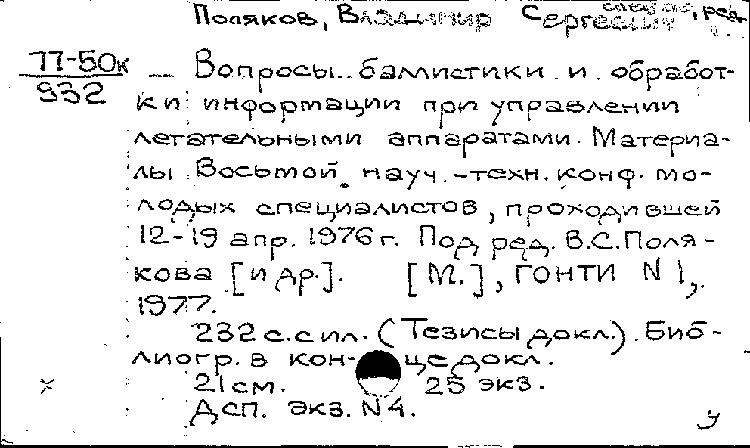 Поляков, Владимир Сергеевич, ред.
77-50к
932
Вопросы баллистики и обработ-
ки информации при управлении
летательными аппаратами. Материа-
лы Восьмой науч.-техн. конф. мо-
лодых специалистов, проходившей
12-19 апр. 1976 г. Под ред. В.С. Поля-
кова [и др.]. [М.], ГОНТИ N 1,
1977.
232 с. с ил. (Тезисы докл.). Биб-
лиогр. в конце докл.
21 см. 25 экз.
Дсп. экз. N 4.
У